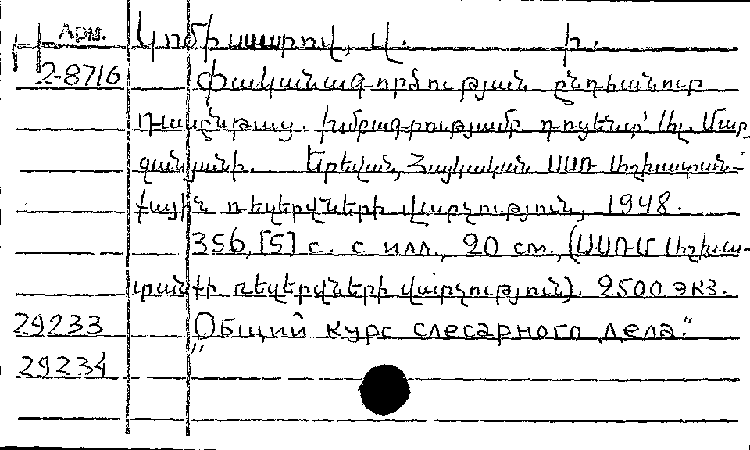 Арм. Կոմիսարով, Վ. Ի.
2-8716 Փականագործության ընդհանուր
դասընթաց. Խմբագրությամբ դոցենտ Ալ. Մար
գանյանի. Երեվան, Հայկական ՍՍՌ Աշխատան-
քային ռեզերվների վարչություն, 1948.
356, [5] с. с илл., 20 см., (ՍՍՌՄ Աշխա-
տանքի ռեզերվների վարչություն). 2500 экз.
29233 „Общий курс слесарного дела“
29234